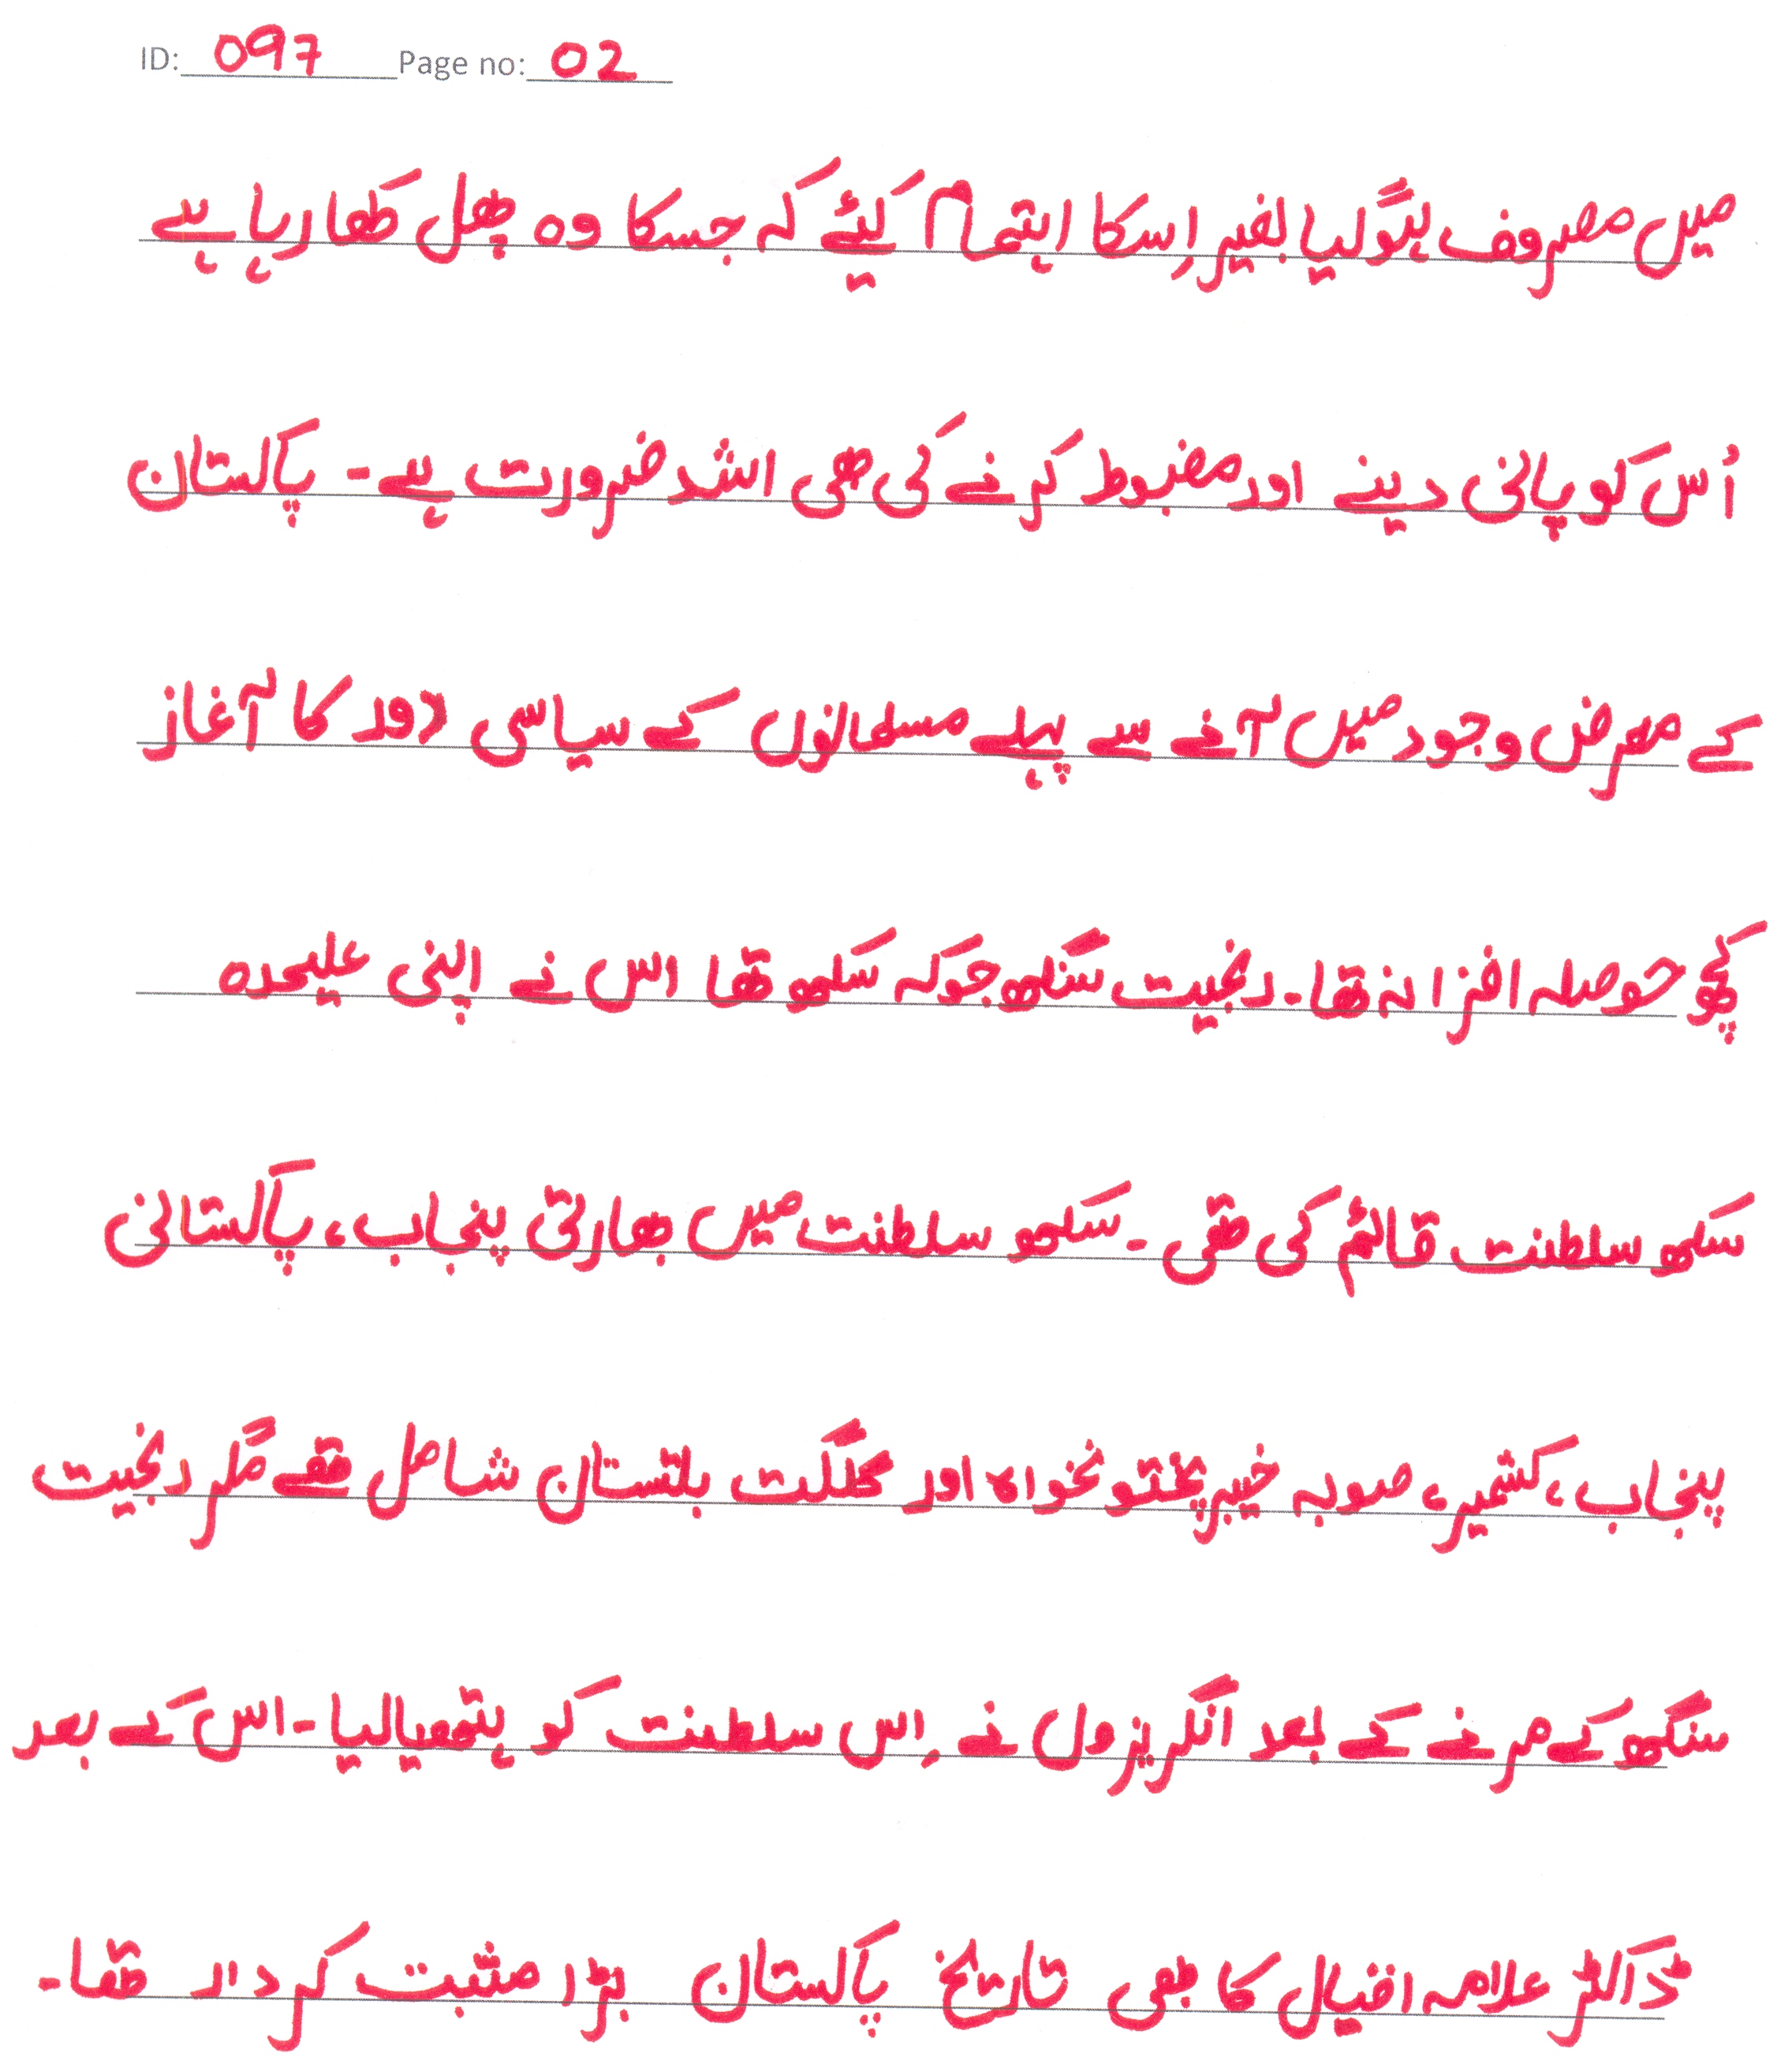 ID: 097 Page no: 02
میں مصروف ہوگیا بغیر اِسکا اہتمام کیئے کہ جسکا وہ پھل کھا رہا ہے
اُس کو پانی دینے اور مضبوط کرنے کی بھی اشد ضرورت ہے۔ پاکستان
کے معرض وجود میں آنے سے پہلے مسلمانوں کے سیاسی دور کا آغاز
کچھ حوصلہ افزا نہ تھا۔ رنجیت سنگھ جو کہ سکھ تھا اس نے اپنی علیحدہ
سکھ سلطنت قائم کی تھی۔ سکھ سلطنت میں بھارتی پنجاب، پاکستانی
پنجاب، کشمیر، صوبہ خیبر پختونخواہ اور گلگت بلتستان شامل تھے مگر رنجیت
سنگھ کے مرنے کے بعد انگریزوں نے اِس سلطنت کو ہتھیالیا۔ اس کے بعد
ڈاکٹر علامہ اقبال کا بھی تاریخ پاکستان بڑا مثبت کردار تھا۔